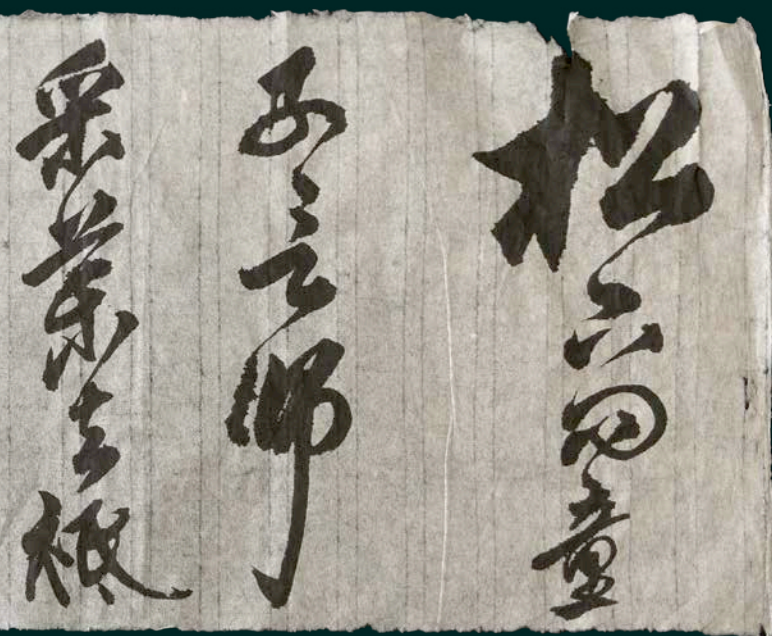 松下問童
子言師
采藥去祗